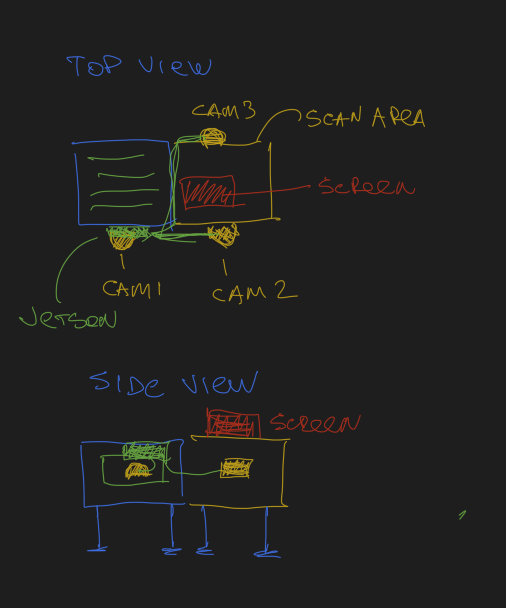 TOP VIEW
CAM3
SCAN AREA
SCREEN
CAM1
CAM2
JETSON
SIDE VIEW
SCREEN